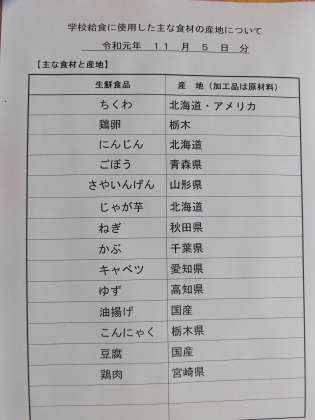 学校給食に使用した主な食材の産地について
令和元年 11 月 5 日 分
【主な食材と産地】
生鮮食品 産 地（加工品は原材料）
ちくわ 北海道・アメリカ
鶏卵 栃木
にんじん 北海道
ごぼう 青森県
さやいんげん 山形県
じゃが芋 北海道
ねぎ 秋田県
かぶ 千葉県
キャベツ 愛知県
ゆず 高知県
油揚げ 国産
こんにゃく 栃木県
豆腐 国産
鶏肉 宮崎県